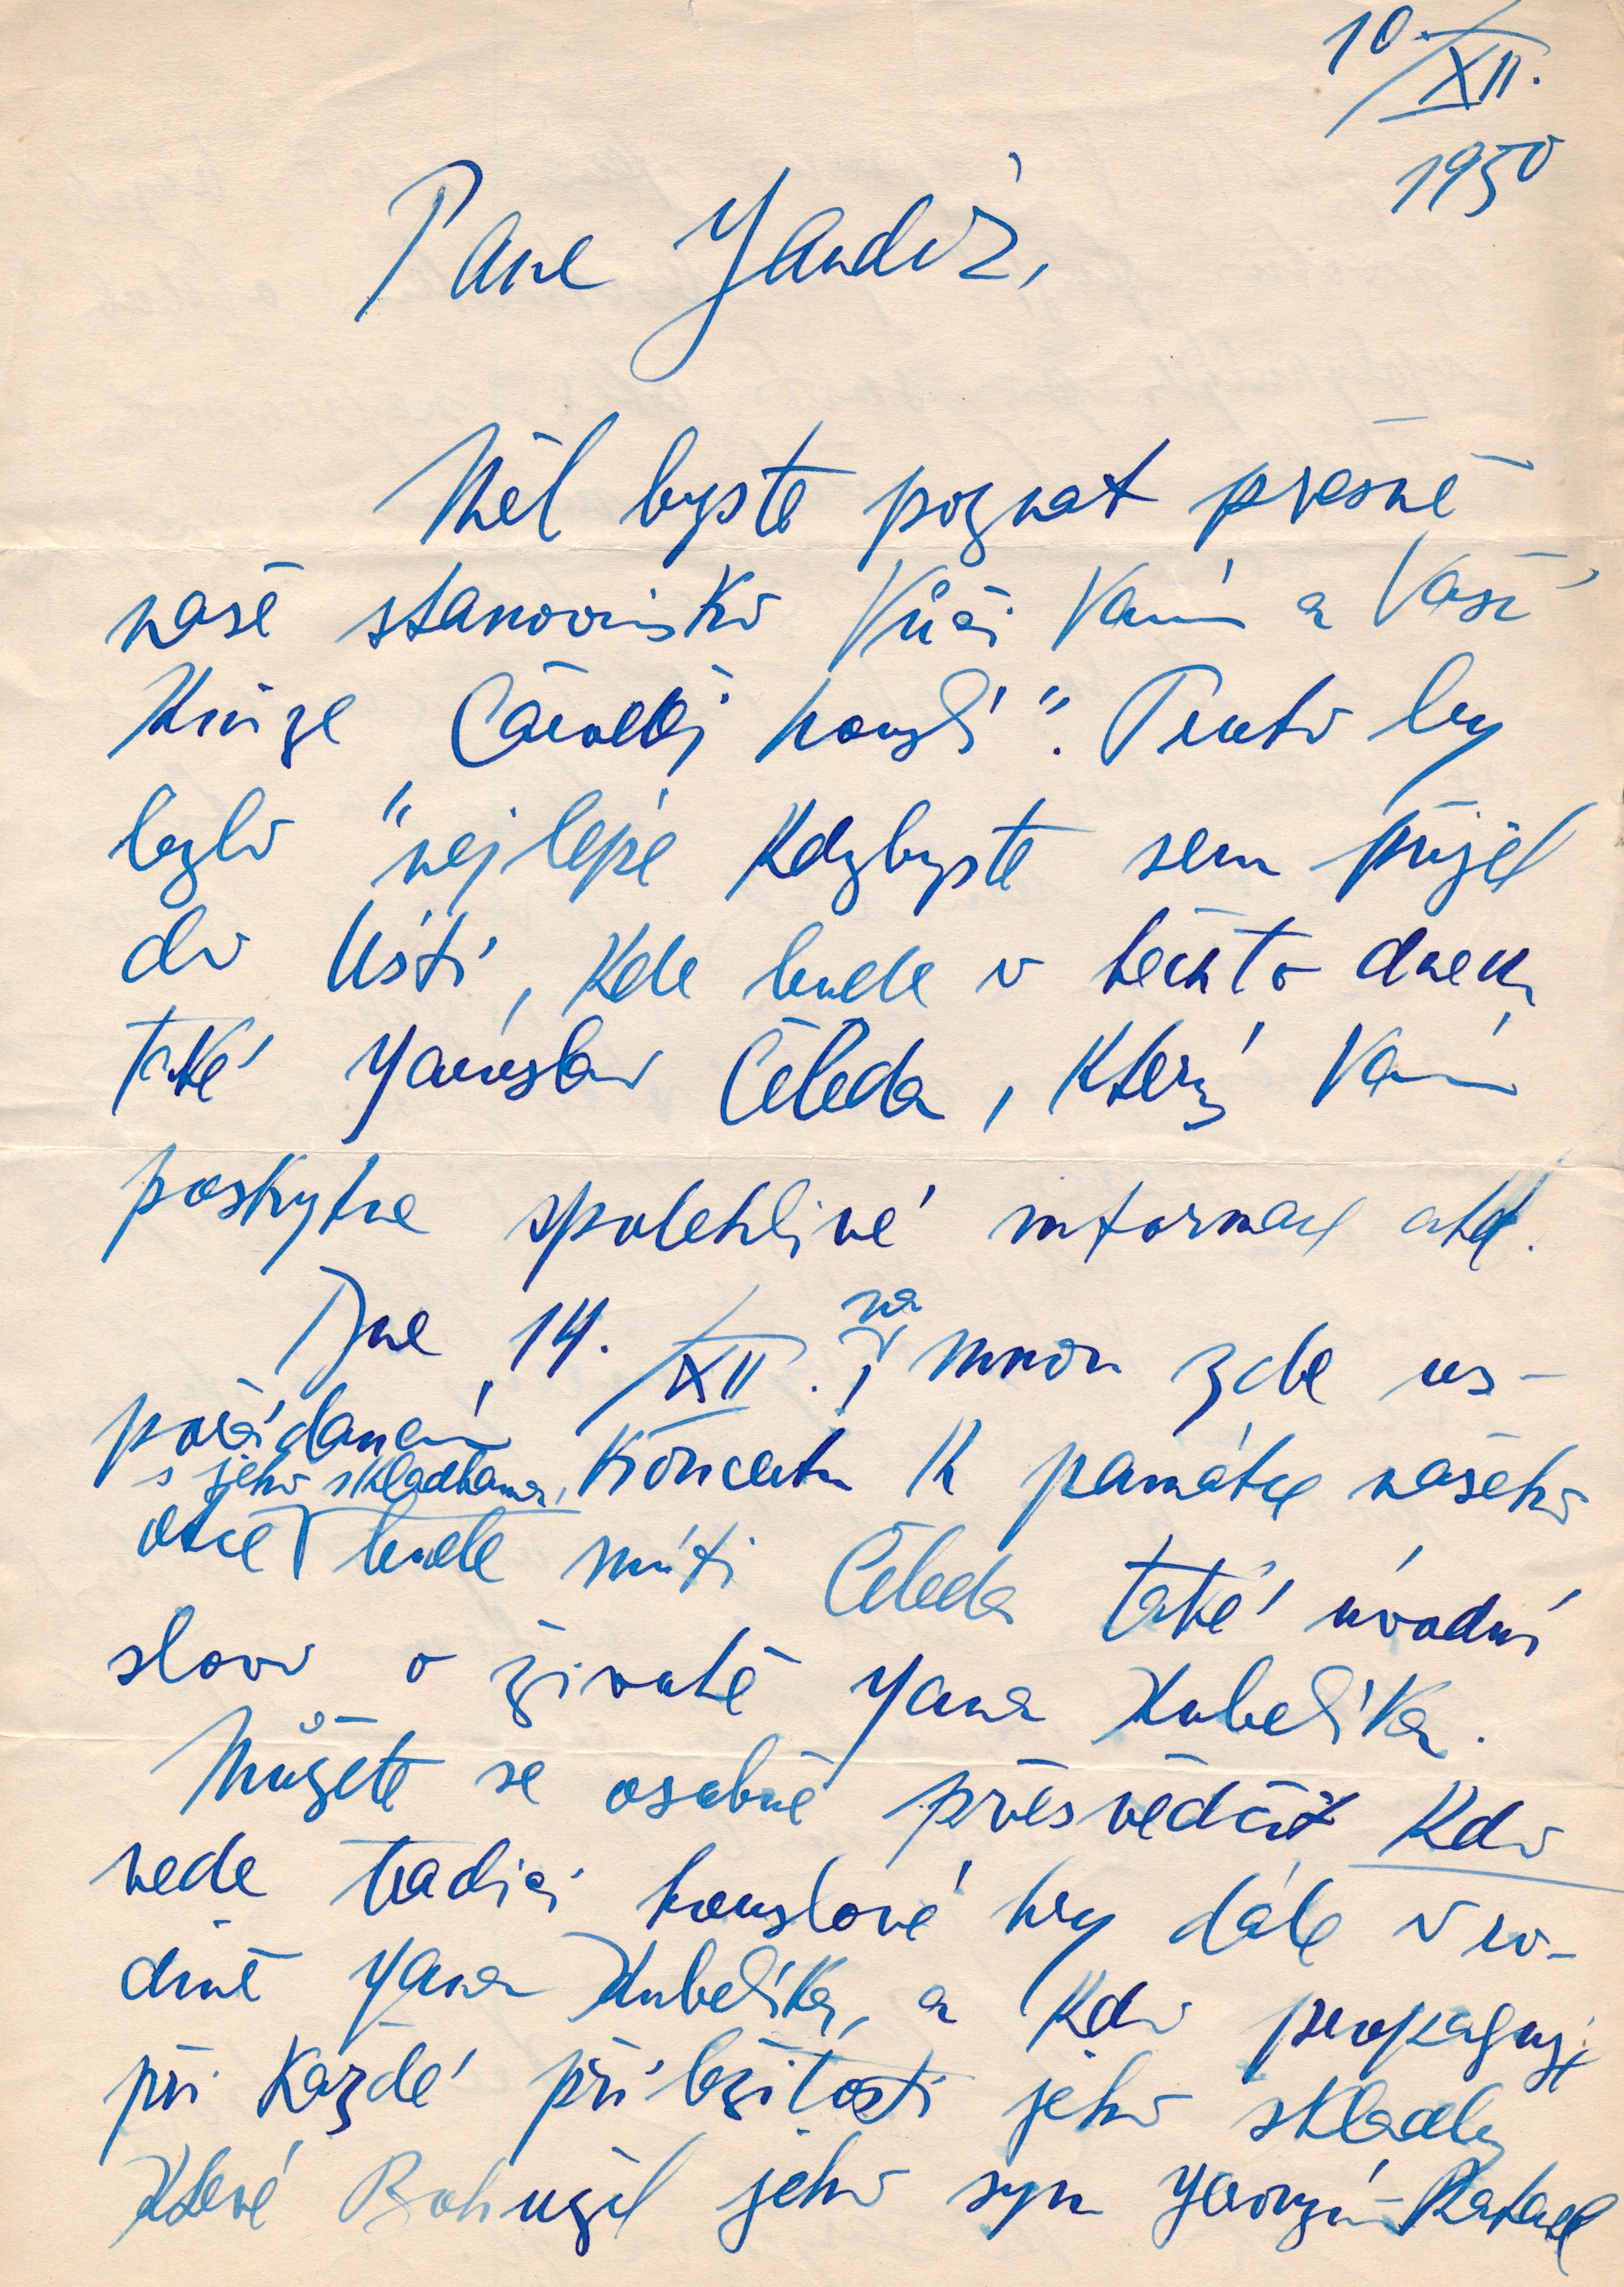 10./XII.
1950
Pane Jandíž,
Měl byste poznat přesně
naše stanovisko Vůči Vám a Vaší
Knize "Čaroděj houslí". Proto by
bylo nejlépe kdybyste sem přijel
do Ústí, kde bude v těchto dnech
také Jaroslav Čeleda, který Vám
poskytne spolehlivé informace atd.
Dne 14./XII. na mnou zde us-
pořádaném Koncertu k památce našeho
otce s jeho skladbami, bude míti Čeleda také úvodní
slovo o životě Jana Kubelíka.
Můžete se osobně přesvědčit Kdo
vede tradici houslové hry dále v ro-
dině Jana Kubelíka, a Kdo propaguje
při každé příležitosti jeho skladby
Které Bohužel jeho syn Jeroným-Rafael